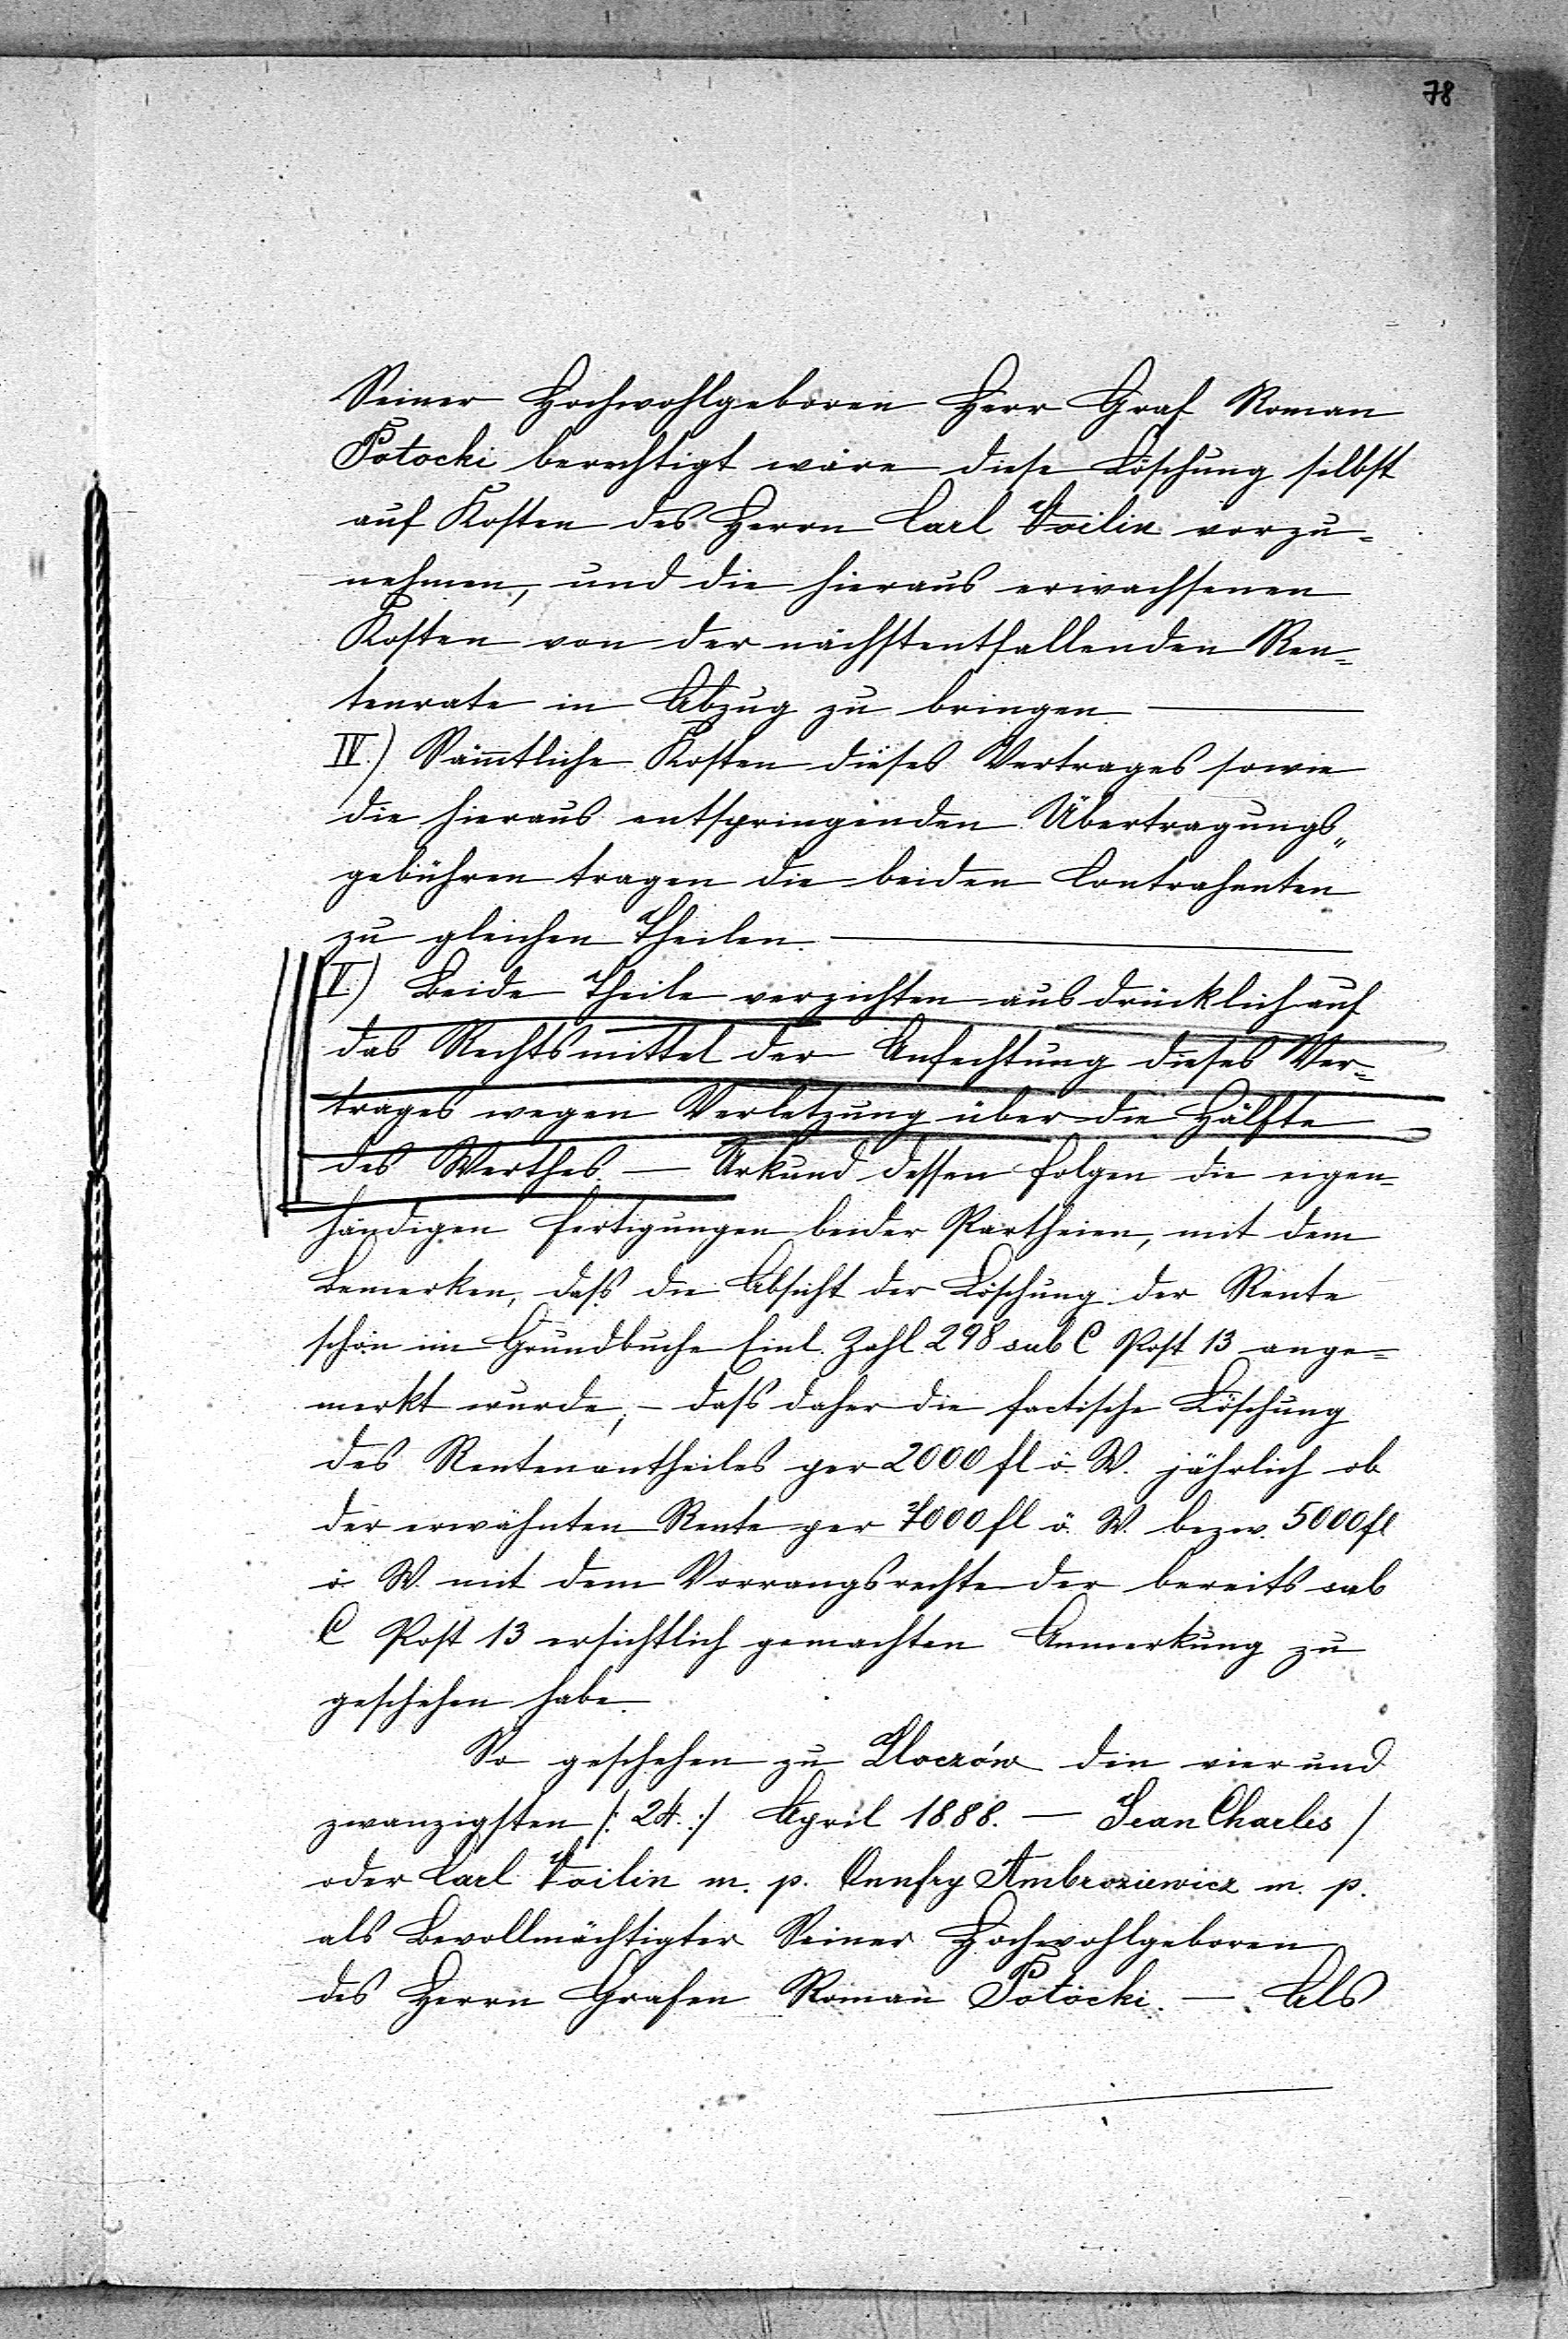 78
Seiner Hochwohlgeboren Herr Graf Roman
Potocki berechtigt wäre diese Löschung selbst
auf Kosten des Herrn Carl Voilin vorzu=
nehmen, und die hieraus erwachsenen
Kosten von der nächstentfallenden Ren=
tenrate in Abzug zu bringen —
IV.) Sämtliche Kosten dieses Vertrages sowie
die hieraus entspringenden Übertragungs„
gebühren tragen die beiden Contrahenten
zu gleichen Theilen. —
V.) Beide Theile verzichten ausdrücklich auf
das Rechtsmittel der Anfechtung dieses Ver=
trages wegen Verletzung über die Hälfte
des Werthes. — Urkund dessen folgen die eigen=
händigen Fertigungen beider Partheien, mit dem
Bemerken, daß die Absicht der Löschung der Rente
schon im Grundbuche Einl. Zahl 298 sub C Post 13 ange=
merkt wurde, – daß daher die factische Löschung
des Rentenantheiles per 2000 fl ö. W. jährlich ob
der erwähnten Rente per 7000 fl ö. W. bezw. 5000 fl
ö W. mit dem Vorrangsrechte der bereits sub
C Post 13 ersichtlich gemachten Anmerkung zu
geschehen habe.
So geschehen zu Zloczów den vier und
zwanzigsten /: 24. :/ April 1888. — Jean Charles /
oder Carl Voilin m. p. Onufry Ambroziewicz m. p.
als Bevollmächtigter Seiner Hochwohlgeboren
des Herrn Grafen Roman Potocki. — Als